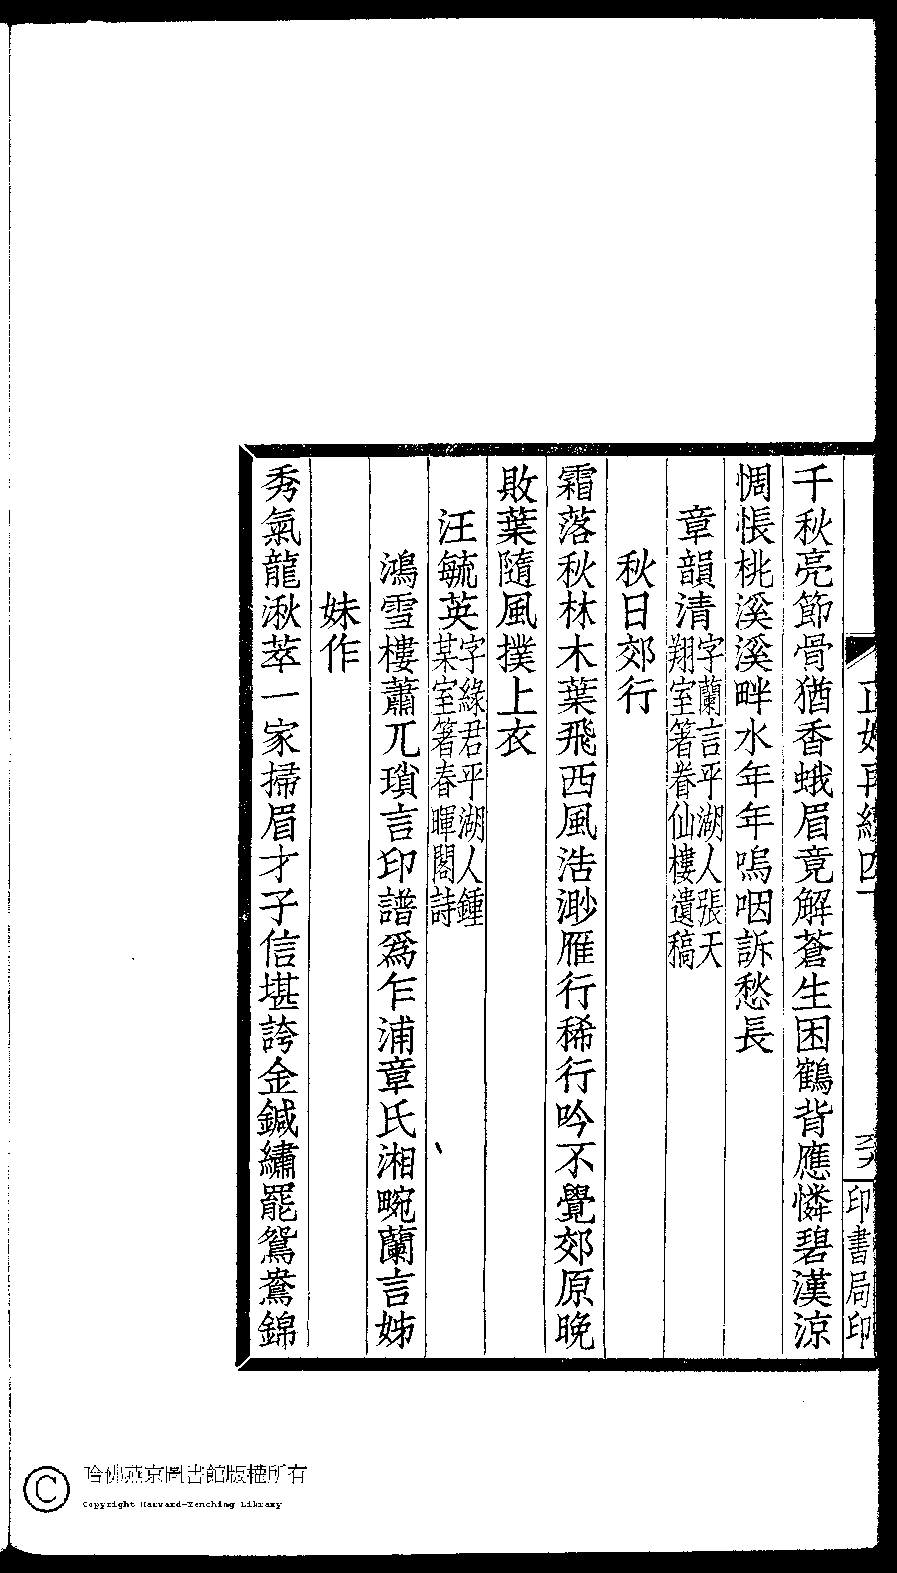 正始再續四
六
印書局印
千秋亮節骨猶香蛾眉竟解蒼生困鶴背應憐碧漢涼
惆悵桃溪溪畔水年年嗚咽訴愁長
章韻清字蘭言平湖人張天翔室箸眷仙樓遺稿
秋日郊行
霜落秋林木葉飛西風浩渺雁行稀行吟不覺郊原晚
敗葉隨風撲上衣
汪毓英字綠君平湖人鍾某室箸春暉閣詩
鴻雪樓蕭兀瑣言印譜爲乍浦章氏湘畹蘭言姊
妹作
秀氣龍湫萃一家掃眉才子信堪誇金鍼繡罷鴛鴦錦
哈佛燕京圖書館版權所有
Copyright Harvard-Yenching Library